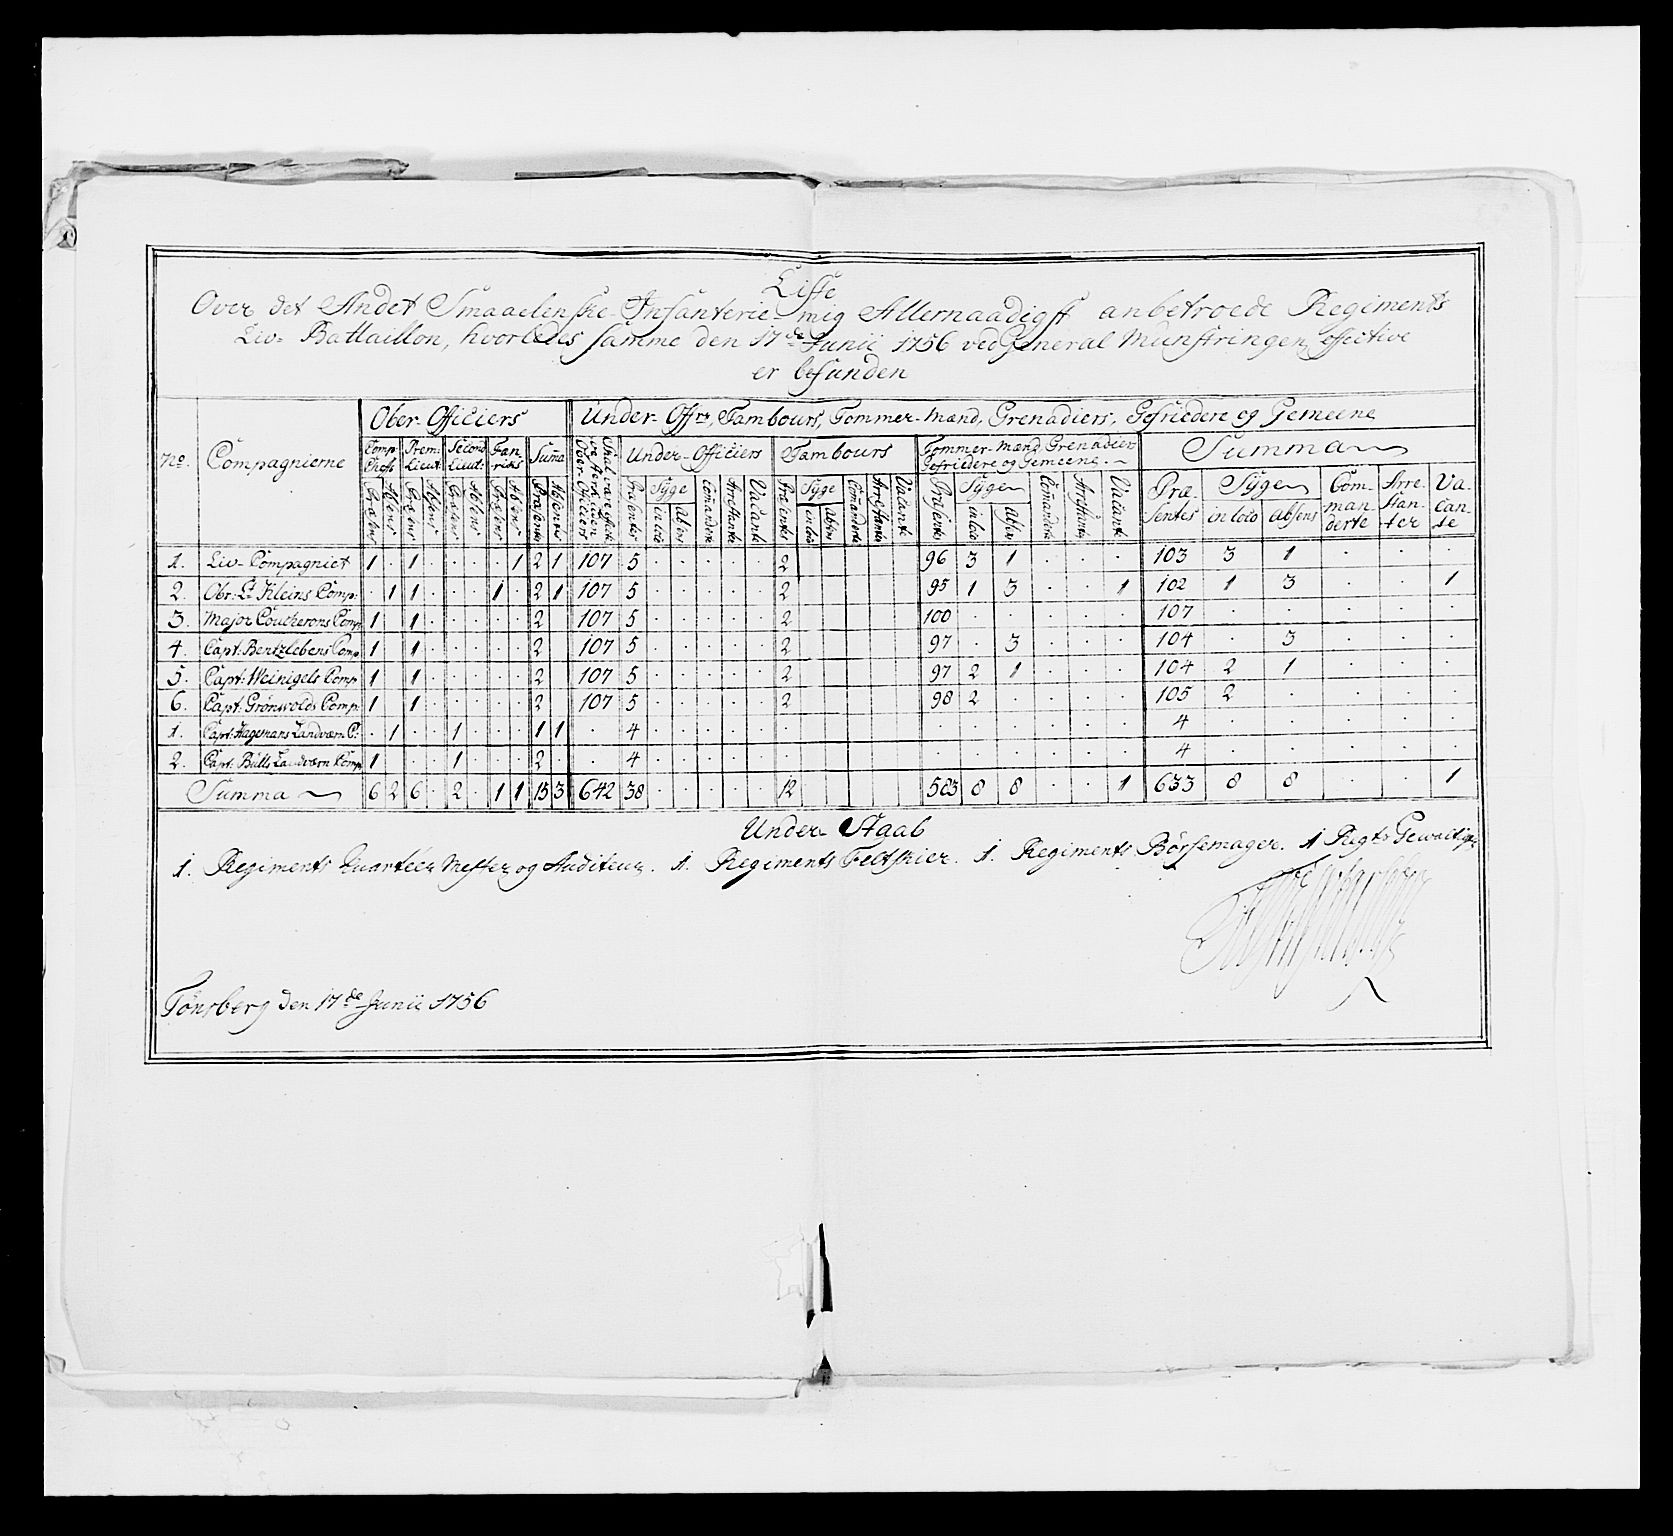 Liste
Over det Andet Smaalenske-Infanterie-mig Allernaadigst anbetroede Regiments
Liv-Battaillon, hvorledes samme den 17de Junii 1756 ved General Munstringen Effective
er befunden
No. Compagnierne Ober-Officiers Under-Offrr, Tambours, Tømmer-Mænd, Grenadiers, Gefriedere og Gemeene
Comp: Chefs Prem: Lieut: Second Lieut: Fænriks Suma Under-Officiers Tambours Tømmer-Mænd Grenadier Gefriedere og Gemeene. Summa
Præsens Absens Præsens Absens Præsens Absens Præsens Absens Præsente Absente Præsentes Syge in loco absens Comanderte Arrestante Vacante Præsentes Syge in loco absens Comanderte Arrestante Vacante Præsentes Syge in loco absens Comanderte Arrestante Vacante Præsentes Syge in loco absens Commanderte Arrestanter Vacante
1. Liv-Compagniet 1 . 1 . . . . 1 2 1 107 5 . . . . . 2 96 3 1 . . . 103 3 1 . . .
2. Obr: Lt Kleins Comp: . 1 1 . . . 1 . 2 1 107 5 . . . . . 2 95 1 3 . . 1 102 1 3 . . 1
3. Major Coucherons Comp 1 . 1 . . . . . 2 107 5 . . . . . 2 100 . . . . . 107 . . . . .
4. Capt: Bentzlebens Comp 1 . 1 . . . . . 2 107 5 . . . . . 2 97 . 3 . . . 104 . 3 . . .
5. Capt: Weinigels Comp 1 . 1 . . . . . 2 107 5 . . . . . 2 97 2 1 . . . 104 2 1 . . .
6. Capt: Grønvolds Comp. 1 . 1 . . . . . 2 107 5 . . . . . 2 98 2 . . . . 105 2 . . . .
1. Capt: Hagemans Landværn C: . 1 . . 1 . . . 1 1 . 4 . . . . . . . . . . . . 4 . . . . .
2. Capt: Bulls Landværn Comp 1 . . . 1 . . . 2 . . 4 . . . . . . . . . . . . 4 . . . . .
Summa 6 2 6 . 2 . 1 1 15 3 642 38 . . . . . 12 583 8 8 . . 1 633 8 8 . . 1
Under-Staab
1. Regiments Quarteer Mester og Auditeur. 1. Regiments Feltskier. 1. Regiments Børsemager. 1 Regts Gewaltiger
Tønsberg den 17de Junii 1756